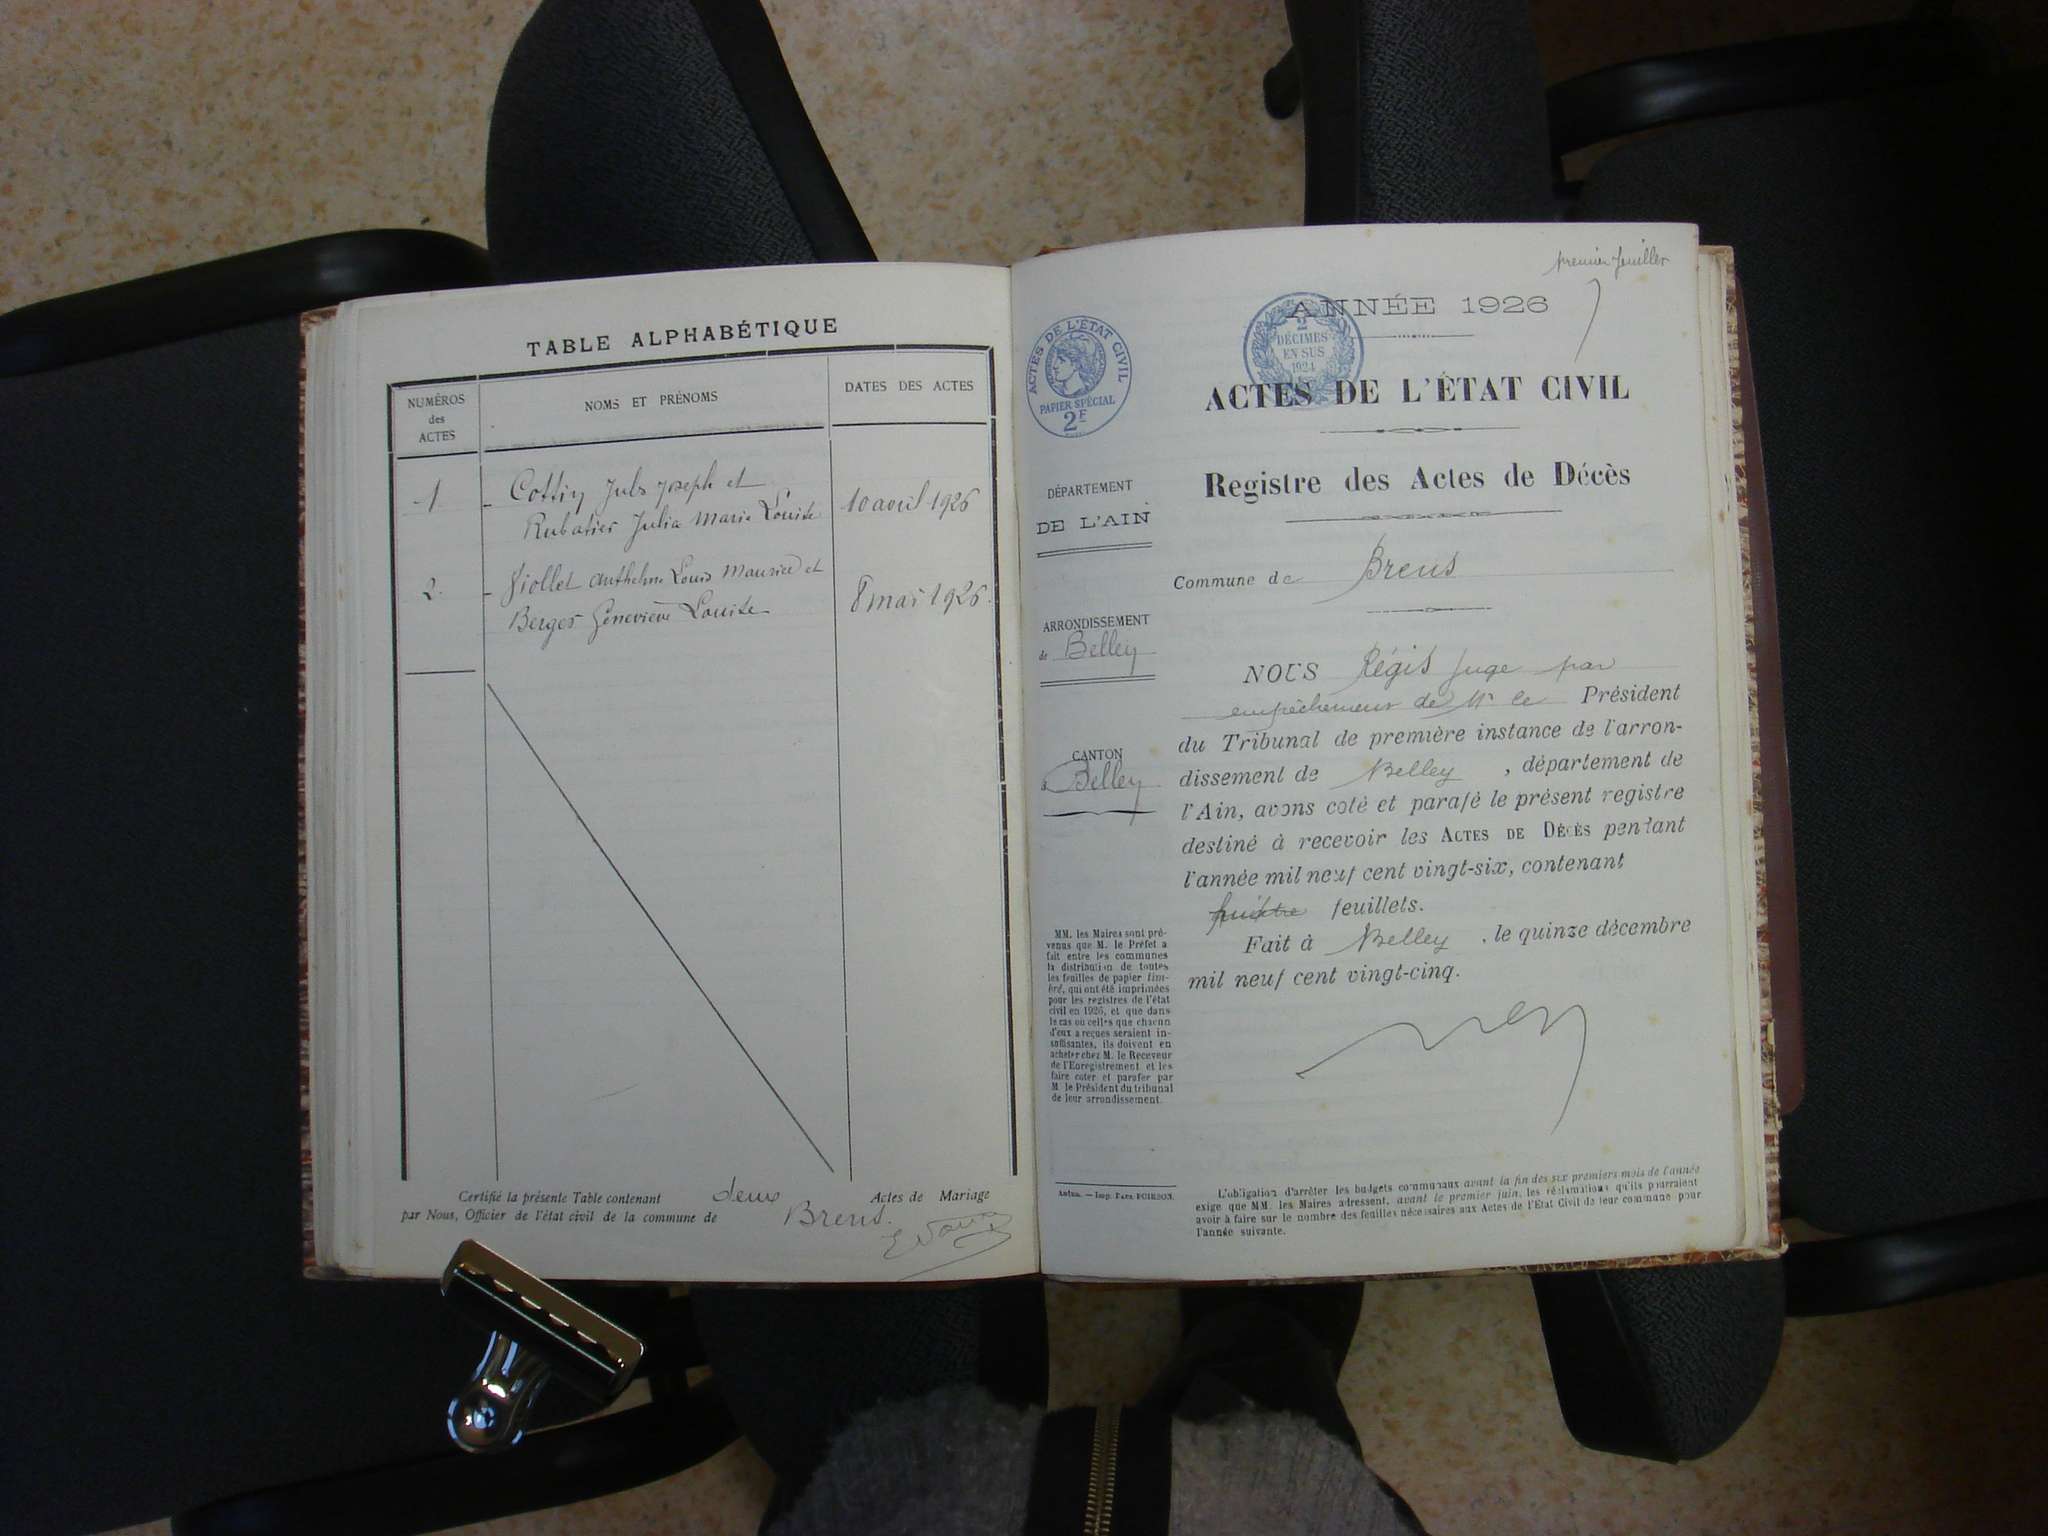 TABLE ALPHABÉTIQUE
NUMÉROS
des
ACTES
NOMS ET PRÉNOMS
DATES DES ACTES
1.
Cottin Juls Joseph et
Rubatier Julia Marie Louise
10 avril 1926
2.
Viollet Anthelme Louis Maurice et
Berger Geneviève Louise
8 mai 1926.
Certifié la présente Table contenant deux Actes de Mariage
par Nous, Officier de l'état civil de la commune de Brens.
premier feuillet
ANNÉE 1926
ACTES DE L'ÉTAT CIVIL
PAPIER SPÉCIAL
2F
2
DÉCIMES
EN SUS
1924
ACTES DE L'ÉTAT CIVIL
Registre des Actes de Décès
DÉPARTEMENT
DE L'AIN
Commune de Brens
ARRONDISSEMENT
de Belley
CANTON
d Belley
NOUS Régis Juge par
empêchement de Mr le Président
du Tribunal de première instance de l'arron-
dissement de Belley, département de
l'Ain, avons coté et parafé le présent registre
destiné à recevoir les ACTES DE DÉCÈS pendant
l'année mil neuf cent vingt-six, contenant
feuillets.
Fait à Belley, le quinze décembre
mil neuf cent vingt-cinq.
MM. les Maires sont pré-
venus que M. le Préfet a
fait entre les communes
la distribution de toutes
les feuilles de papier tim-
bré, qui ont été imprimées
pour les registres de l'état
civil en 1926, et que dans
le cas où celles que chacun
d'eux a reçues seraient in-
suffisantes, ils doivent en
acheter chez M. le Receveur
de l'Enregistrement et les
faire coter et parafer par
M. le Président du tribunal
de leur arrondissement.
Autun. — Imp. Para POIRSON.
L'obligation d'arrêter les budgets communaux avant la fin des six premiers mois de l'année
exige que MM. les Maires adressent, avant le premier juin, les réclamations qu'ils pourraient
avoir à faire sur le nombre des feuilles nécessaires aux Actes de l'État Civil de leur commune pour
l'année suivante.